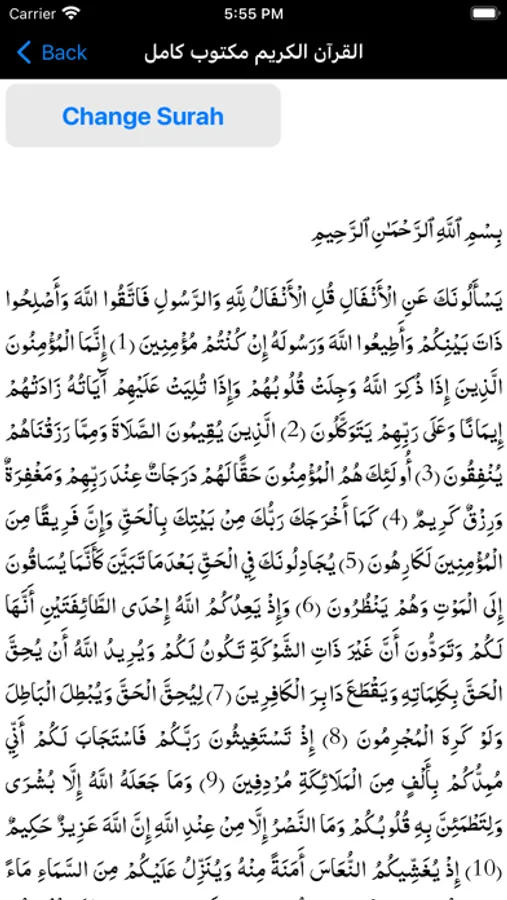 Carrier 5:55 PM
Back القرآن الكريم مكتوب كامل
Change Surah
بِسْمِ ٱللَّهِ ٱلرَّحْمَٰنِ ٱلرَّحِيمِ
يَسْأَلُونَكَ عَنِ الْأَنْفَالِ قُلِ الْأَنْفَالُ لِلَّهِ وَالرَّسُولِ فَاتَّقُوا اللَّهَ وَأَصْلِحُوا
ذَاتَ بَيْنِكُمْ وَأَطِيعُوا اللَّهَ وَرَسُولَهُ إِنْ كُنْتُمْ مُؤْمِنِينَ (1) إِنَّمَا الْمُؤْمِنُونَ
الَّذِينَ إِذَا ذُكِرَ اللَّهُ وَجِلَتْ قُلُوبُهُمْ وَإِذَا تُلِيَتْ عَلَيْهِمْ آيَاتُهُ زَادَتْهُمْ
إِيمَانًا وَعَلَى رَبِّهِمْ يَتَوَكَّلُونَ (2) الَّذِينَ يُقِيمُونَ الصَّلَاةَ وَمِمَّا رَزَقْنَاهُمْ
يُنْفِقُونَ (3) أُولَئِكَ هُمُ الْمُؤْمِنُونَ حَقًّا لَهُمْ دَرَجَاتٌ عِنْدَ رَبِّهِمْ وَمَغْفِرَةٌ
وَرِزْقٌ كَرِيمٌ (4) كَمَا أَخْرَجَكَ رَبُّكَ مِنْ بَيْتِكَ بِالْحَقِّ وَإِنَّ فَرِيقًا مِنَ
الْمُؤْمِنِينَ لَكَارِهُونَ (5) يُجَادِلُونَكَ فِي الْحَقِّ بَعْدَمَا تَبَيَّنَ كَأَنَّمَا يُسَاقُونَ
إِلَى الْمَوْتِ وَهُمْ يَنْظُرُونَ (6) وَإِذْ يَعِدُكُمُ اللَّهُ إِحْدَى الطَّائِفَتَيْنِ أَنَّهَا
لَكُمْ وَتَوَدُّونَ أَنَّ غَيْرَ ذَاتِ الشَّوْكَةِ تَكُونُ لَكُمْ وَيُرِيدُ اللَّهُ أَنْ يُحِقَّ
الْحَقَّ بِكَلِمَاتِهِ وَيَقْطَعَ دَابِرَ الْكَافِرِينَ (7) لِيُحِقَّ الْحَقَّ وَيُبْطِلَ الْبَاطِلَ
وَلَوْ كَرِهَ الْمُجْرِمُونَ (8) إِذْ تَسْتَغِيثُونَ رَبَّكُمْ فَاسْتَجَابَ لَكُمْ أَنِّي
مُمِدُّكُمْ بِأَلْفٍ مِنَ الْمَلَائِكَةِ مُرْدِفِينَ (9) وَمَا جَعَلَهُ اللَّهُ إِلَّا بُشْرَى
وَلِتَطْمَئِنَّ بِهِ قُلُوبُكُمْ وَمَا النَّصْرُ إِلَّا مِنْ عِنْدِ اللَّهِ إِنَّ اللَّهَ عَزِيزٌ حَكِيمٌ
(10) إِذْ يُغَشِّيكُمُ النُّعَاسَ أَمَنَةً مِنْهُ وَيُنَزِّلُ عَلَيْكُمْ مِنَ السَّمَاءِ مَاءً